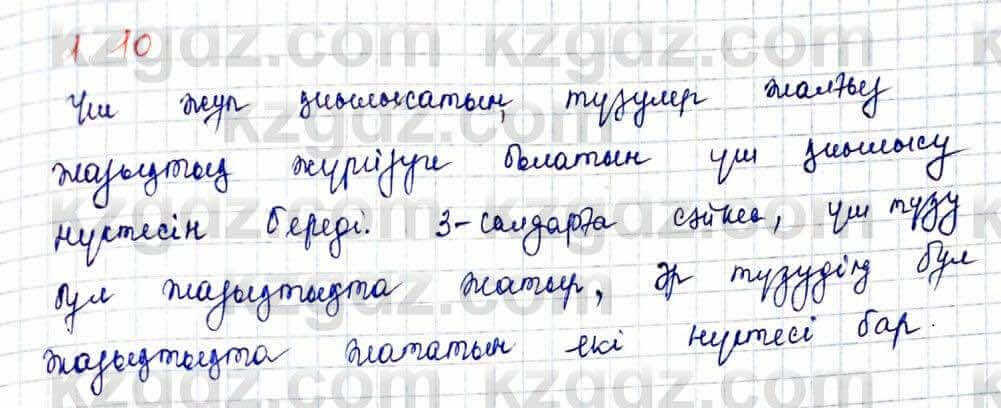 1 10
Үш жұп қиылысатын, түзулер жалғыз
жазықтық жүргізуге болатын үш қиылысу
нүктесін береді. 3-салдарға сәйкес, үш түзу
бұл жазықтықта жатыр, әр түзудің бұл
жазықтықта жататын екі нүктесі бар.
kzgdz.com